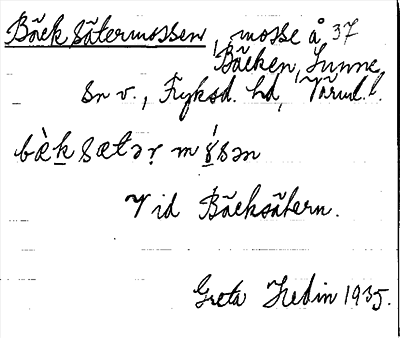 Bäcksätermossen, mosse å 37
Bäcken, Sunne
sn v., Fryksd. hd, Värml.
bὲk sætər mɤ́sən
Vid Bäcksätern.
Greta Hedin 1935.